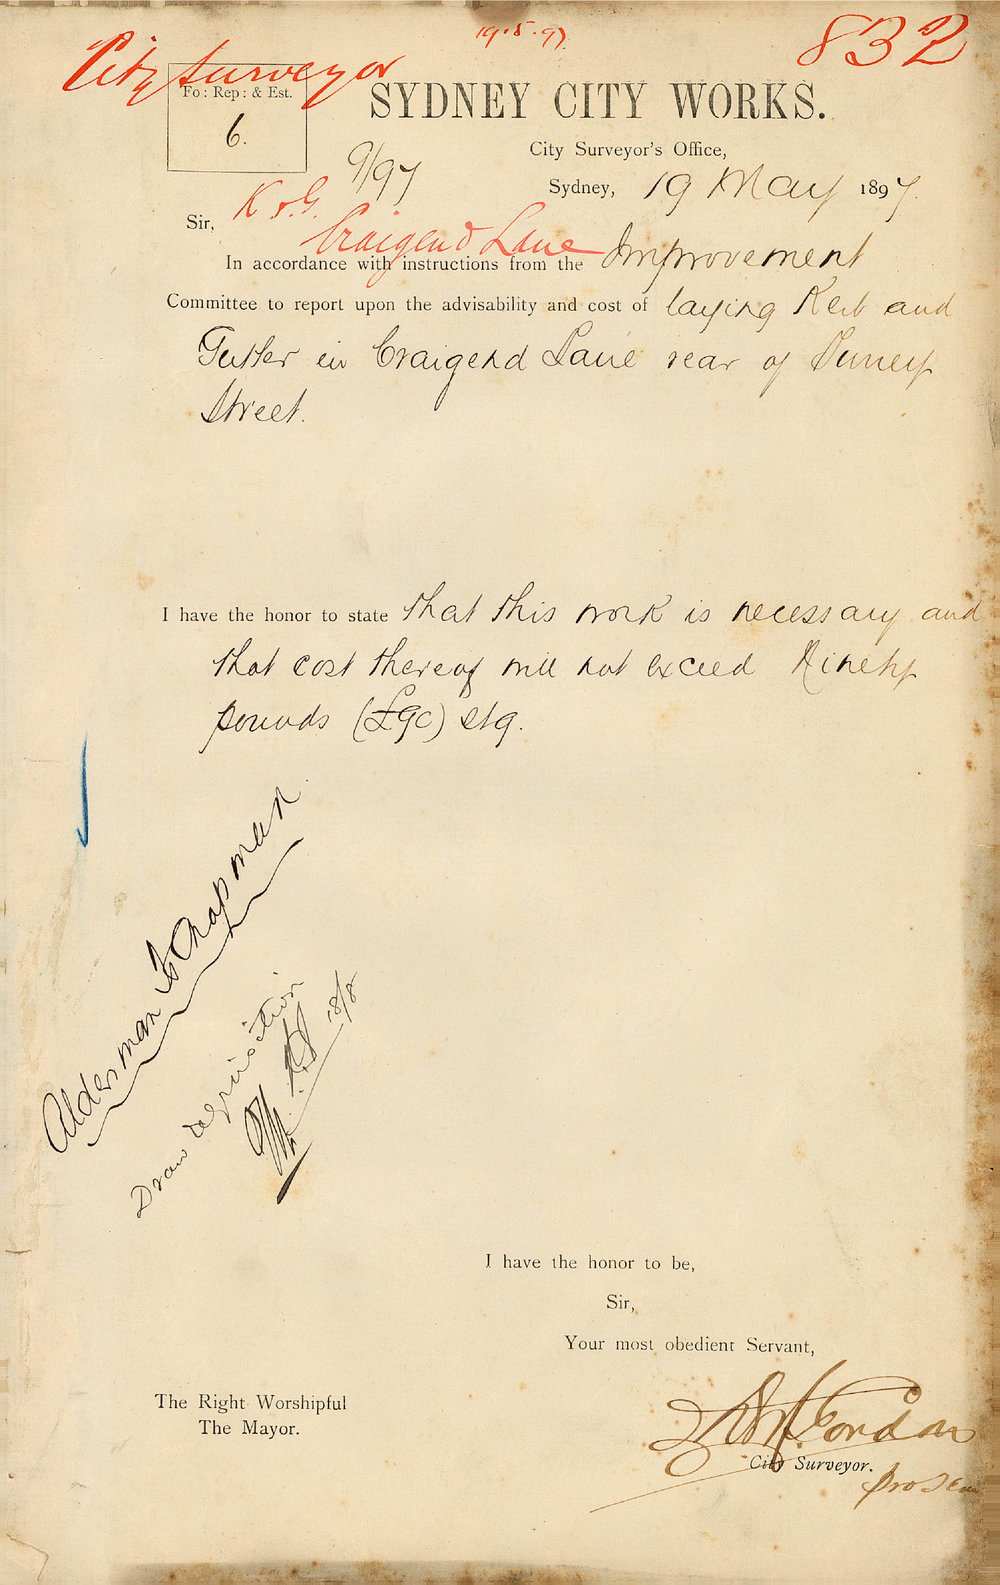 19.5.97.
832
City Surveyor
Fo: Rep: & Est.
6.
SYDNEY CITY WORKS.
City Surveyor's Office,
9/97
Sydney, 19 May 1897.
K & G.
Sir,
Craigend Lane
In accordance with instructions from the Improvement
Committee to report upon the advisability and cost of laying Kerb and
Gutter in Craigend Lane rear of Surrey
Street.
I have the honor to state that this work is necessary and
that cost thereof will not exceed Ninety
pounds (£90) stg.
Alderman Chapman
Draw requisition
18/8
I have the honor to be,
Sir,
Your most obedient Servant,
The Right Worshipful
The Mayor.
Gordon
City Surveyor.
pro tem